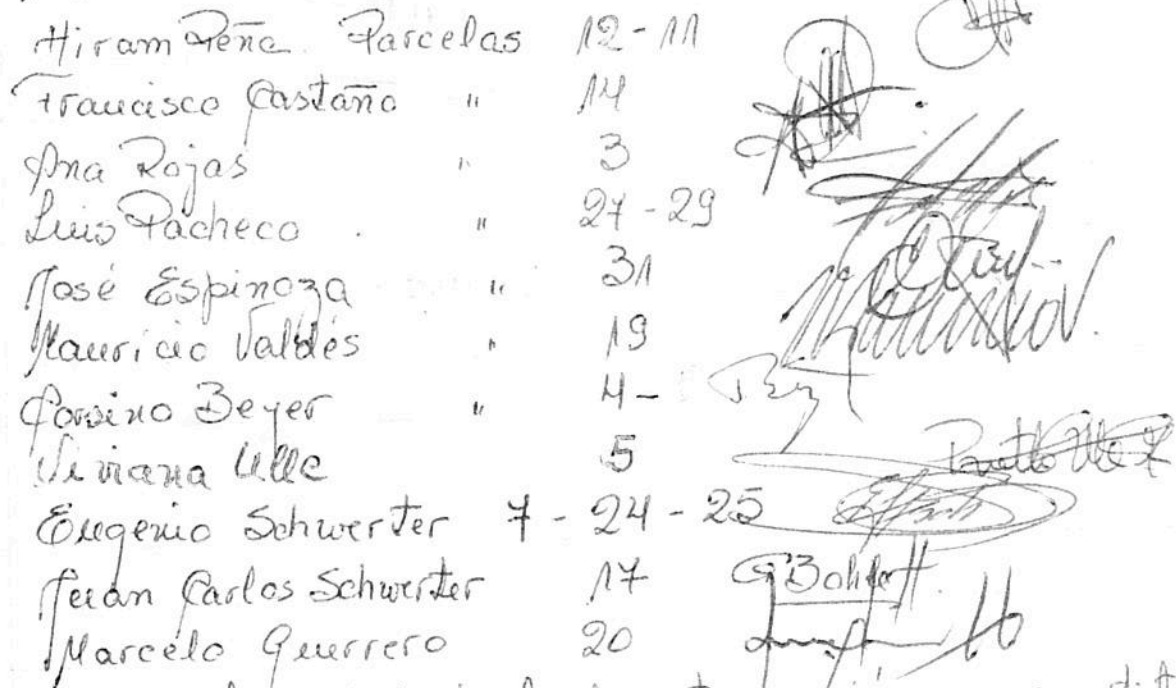 Hiram Peña. Parcelas 12-11
Francisco Castaño " 14
Ana Rojas " 3
Luis Pacheco. " 27-29
José Espinoza " 31
Mauricio Valdés " 19
Corsino Beyer " 4-
Viviana Ulle 5
Eugenio Schwerter 7-24-25
Juan Carlos Schwerter 17
Marcelo Guerrero 20